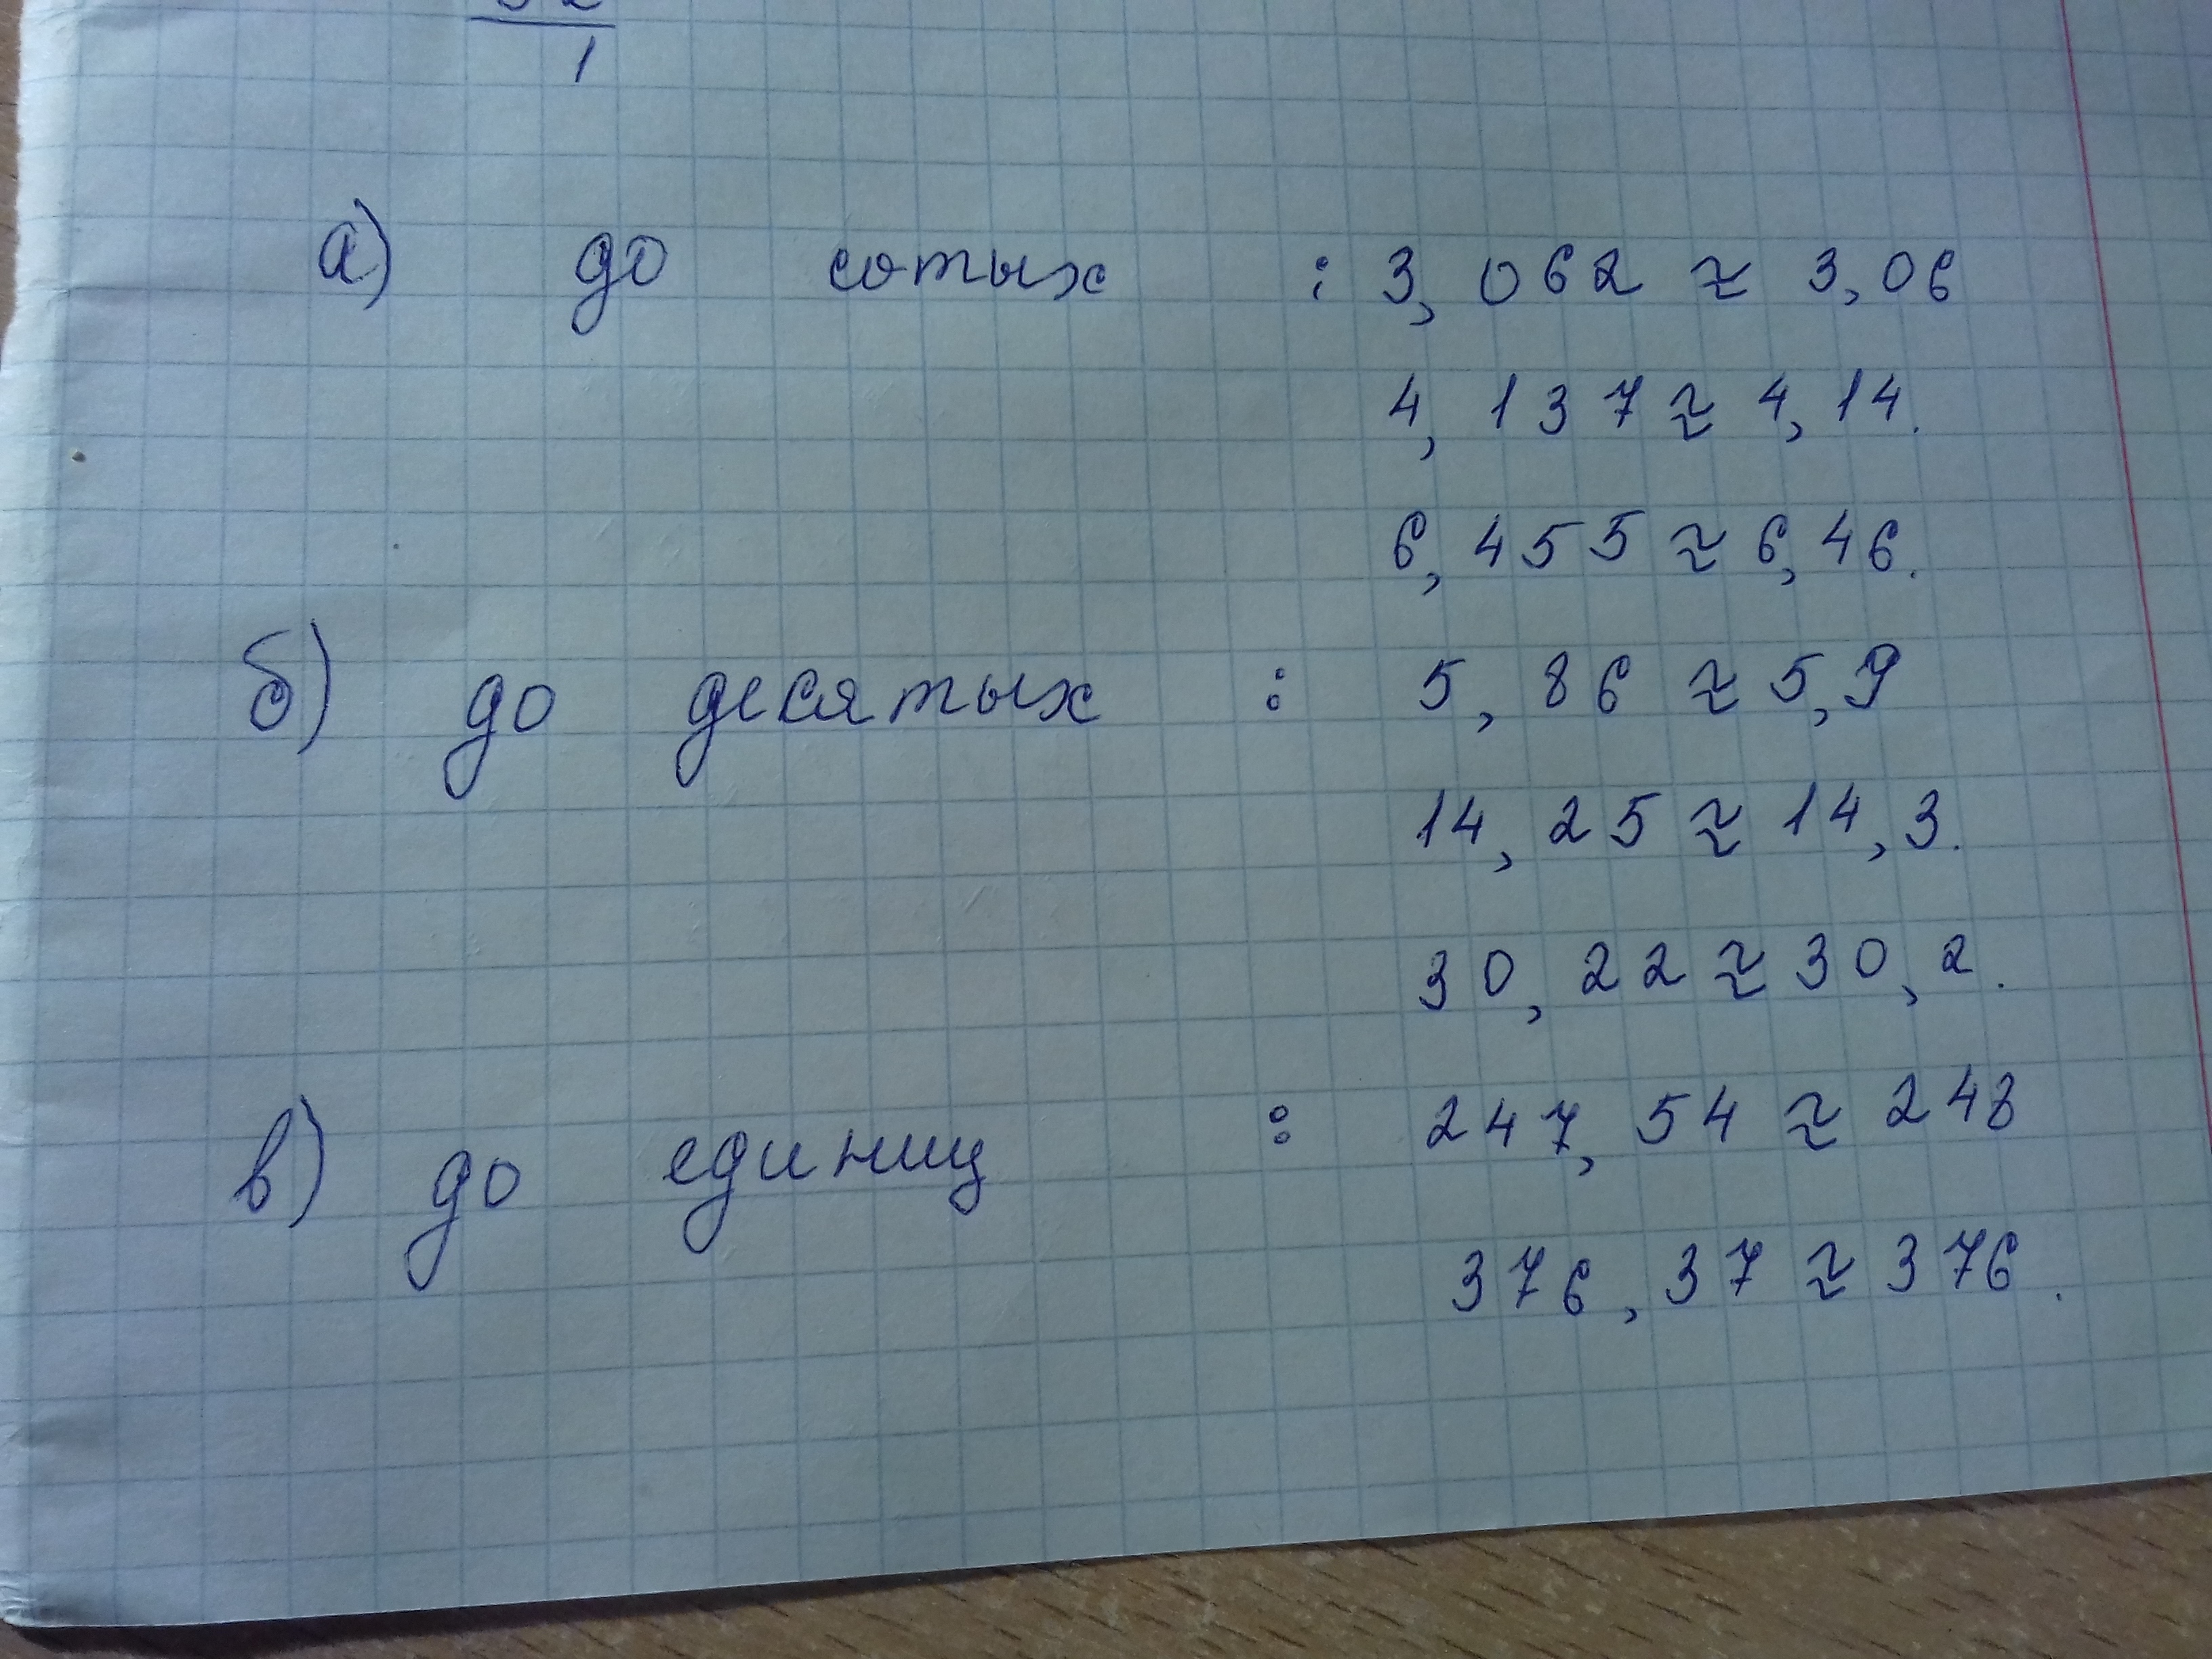 1
а) до сотых : 3,062 ≈ 3,06
4,137 ≈ 4,14.
6,455 ≈ 6,46.
б) до десятых : 5,86 ≈ 5,9
14,25 ≈ 14,3.
30,22 ≈ 30,2.
в) до единиц : 247,54 ≈ 248
376,37 ≈ 376.